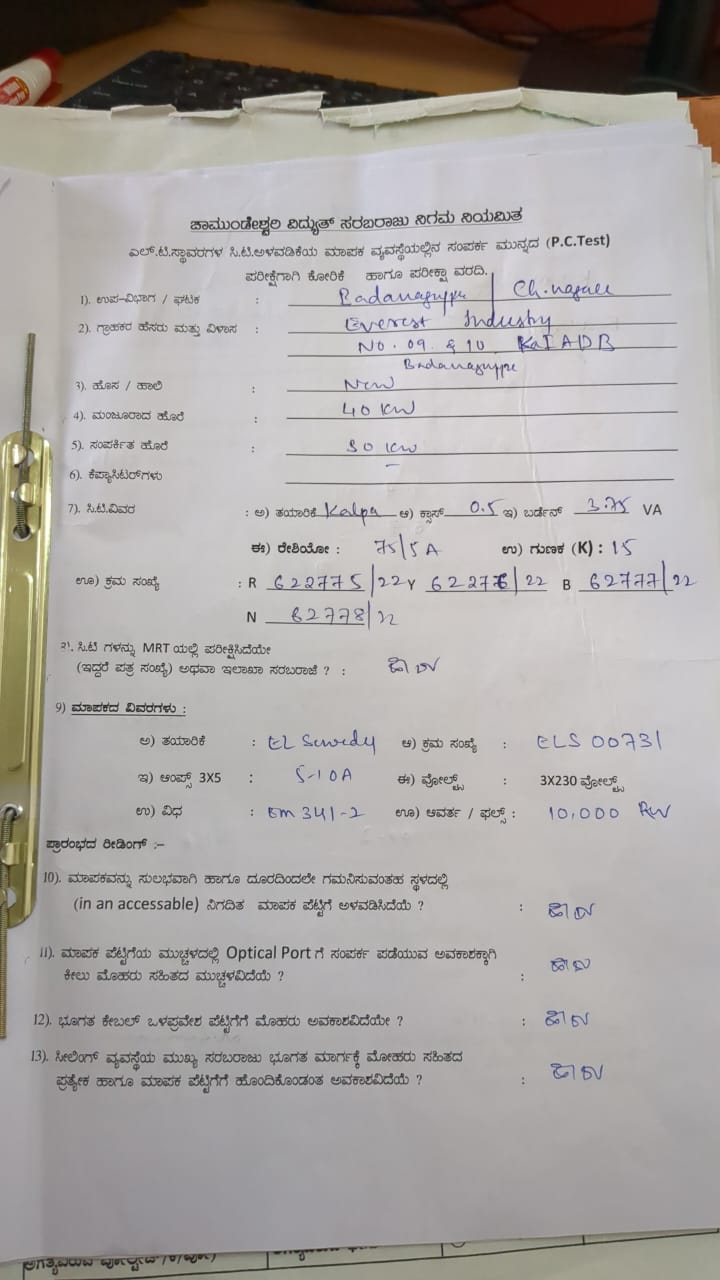 ಚಾಮುಂಡೇಶ್ವರಿ ವಿದ್ಯುತ್ ಸರಬರಾಜು ನಿಗಮ ನಿಯಮಿತ
ಎಲ್.ಟಿ.ಸ್ಥಾವರಗಳ ಸಿ.ಟಿ.ಅಳವಡಿಕೆಯ ಮಾಪಕ ವ್ಯವಸ್ಥೆಯಲ್ಲಿನ ಸಂಪರ್ಕ ಮುನ್ನದ (P.C.Test)
ಪರೀಕ್ಷೆಗಾಗಿ ಕೋರಿಕೆ ಹಾಗೂ ಪರೀಕ್ಷಾ ವರದಿ.
1). ಉಪ-ವಿಭಾಗ / ಘಟಕ : Badanaguppe /
2). ಗ್ರಾಹಕರ ಹೆಸರು ಮತ್ತು ವಿಳಾಸ : Everest Industry
NO. 09 & 10 KaIADB
Badanaguppe
3). ಹೊಸ / ಹಾಲಿ : New
4). ಮಂಜೂರಾದ ಹೊರೆ : 40 KW
5). ಸಂಪರ್ಕಿತ ಹೊರೆ : KW
6). ಕೆಪ್ಯಾಸಿಟರ್‌ಗಳು –
7). ಸಿ.ಟಿ.ವಿವರ : ಅ) ತಯಾರಿಕೆ Kalpa ಆ) ಕ್ಲಾಸ್ 0.5 ಇ) ಬರ್ಡೆನ್ 3.75 VA
ಈ) ರೇಶಿಯೋ : 75/5 A ಉ) ಗುಣಕ (K) : 15
ಊ) ಕ್ರಮ ಸಂಖ್ಯೆ : R 622775/22 Y 62276/22 B 62777/22
N 62778/22
ಸಿ.ಟಿ ಗಳನ್ನು MRT ಯಲ್ಲಿ ಪರೀಕ್ಷಿಸಿದೆಯೇ
(ಇದ್ದರೆ ಪತ್ರ ಸಂಖ್ಯೆ) ಅಥವಾ ಇಲಾಖಾ ಸರಬರಾಜೆ ? : ಹೌದು
9) ಮಾಪಕದ ವಿವರಗಳು :
ಅ) ತಯಾರಿಕೆ : EL Sewedy ಆ) ಕ್ರಮ ಸಂಖ್ಯೆ : ELS 00731
ಇ) ಆಂಪ್ಸ್ 3X5 : 5-10A ಈ) ವೋಲ್ಟ್ಸ್ : 3X230 ವೋಲ್ಟ್ಸ್
ಉ) ವಿಧ : EM 341-2 ಊ) ಆವರ್ತ / ಫಲ್ಸ್ : 10,000
ಪ್ರಾರಂಭದ ರೀಡಿಂಗ್ :–
10). ಮಾಪಕವನ್ನು ಸುಲಭವಾಗಿ ಹಾಗೂ ದೂರದಿಂದಲೇ ಗಮನಿಸುವಂತಹ ಸ್ಥಳದಲ್ಲಿ
(in an accessable) ನಿಗದಿತ ಮಾಪಕ ಪೆಟ್ಟಿಗೆ ಅಳವಡಿಸಿದೆಯೆ ? : ಹೌದು
11). ಮಾಪಕ ಪೆಟ್ಟಿಗೆಯ ಮುಚ್ಚಳದಲ್ಲಿ Optical Port ಗೆ ಸಂಪರ್ಕ ಪಡೆಯುವ ಅವಕಾಶಕ್ಕಾಗಿ
ಕೀಲು ಮೊಹರು ಸಹಿತದ ಮುಚ್ಚಳವಿದೆಯೆ ? : ಹೌದು
12). ಭೂಗತ ಕೇಬಲ್ ಒಳಪ್ರವೇಶ ಪೆಟ್ಟಿಗೆಗೆ ಮೊಹರು ಅವಕಾಶವಿದೆಯೇ ? : ಹೌದು
13). ಸೀಲಿಂಗ್ ವ್ಯವಸ್ಥೆಯ ಮುಖ್ಯ ಸರಬರಾಜು ಭೂಗತ ಮಾರ್ಗಕ್ಕೆ ಮೋಹರು ಸಹಿತದ
ಪ್ರತ್ಯೇಕ ಹಾಗೂ ಮಾಪಕ ಪೆಟ್ಟಿಗೆಗೆ ಹೊಂದಿಕೊಂಡಂತ ಅವಕಾಶವಿದೆಯೆ ? : ಹೌದು